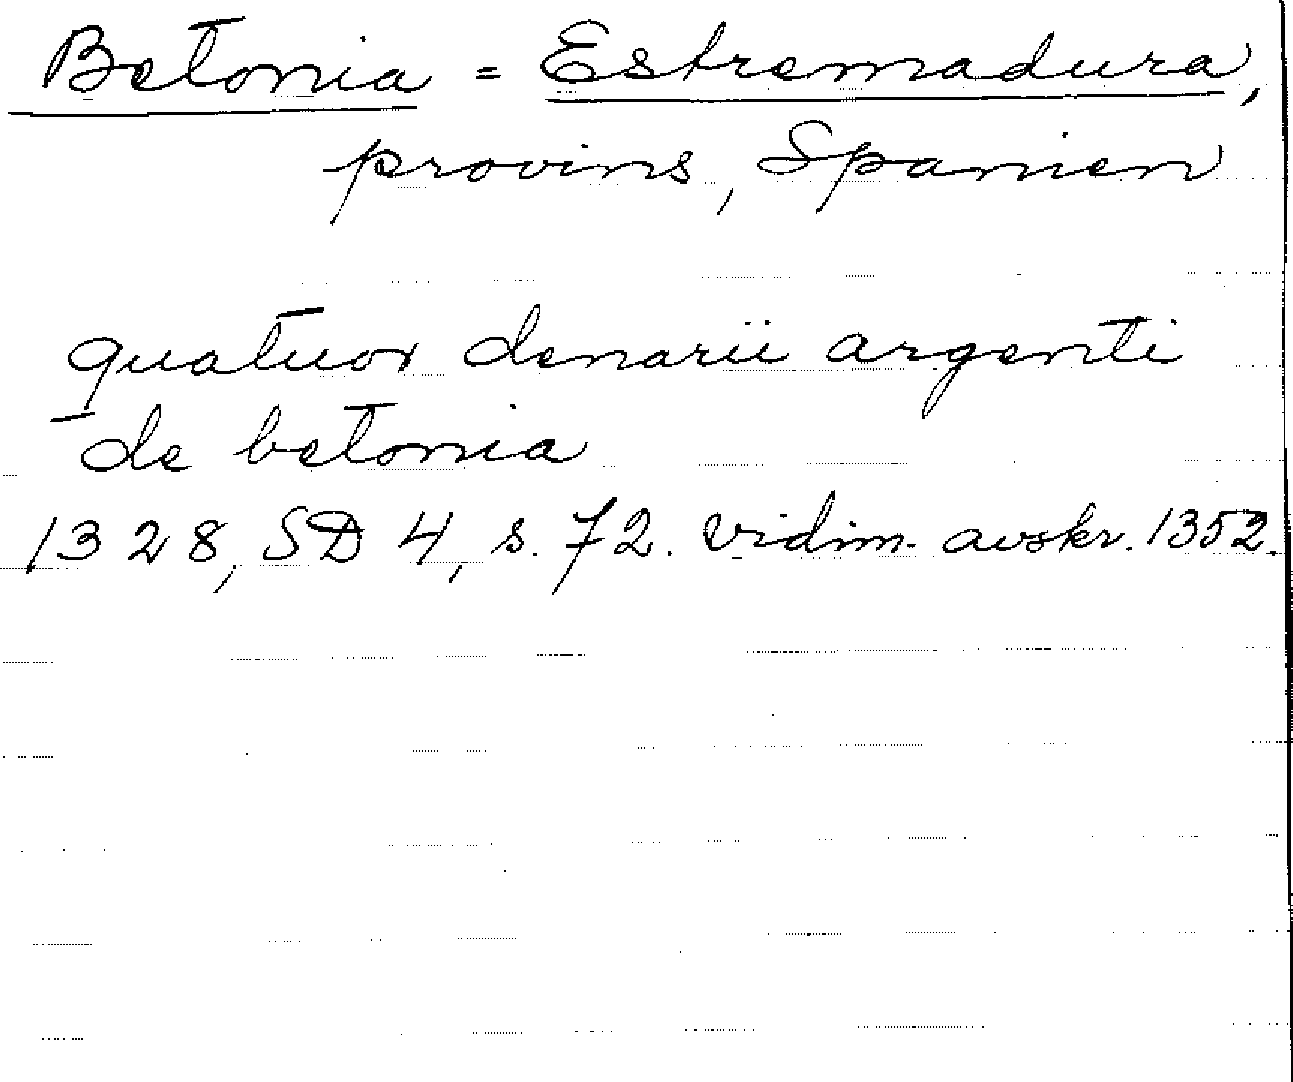 Betonia = Estremadura,
provins, Spanien
quatuor denarii argenti
de betonia
1328, SD 4, s. 72. vidim. avskr. 1352.